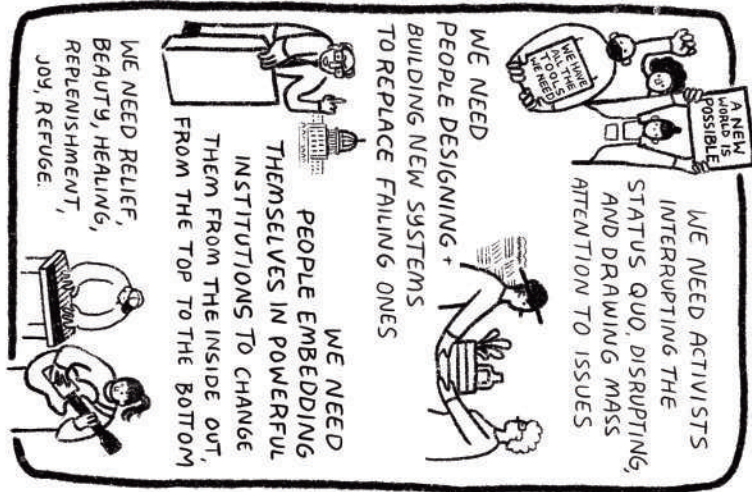 WE HAVE
ALL THE
TOOLS
WE NEED
A NEW
WORLD IS
POSSIBLE
WE NEED ACTIVISTS
INTERRUPTING THE
STATUS QUO, DISRUPTING,
AND DRAWING MASS
ATTENTION TO ISSUES
WE NEED
PEOPLE DESIGNING +
BUILDING NEW SYSTEMS
TO REPLACE FAILING ONES
WE NEED
PEOPLE EMBEDDING
THEMSELVES IN POWERFUL
INSTITUTIONS TO CHANGE
THEM FROM THE INSIDE OUT,
FROM THE TOP TO THE BOTTOM
WE NEED RELIEF,
BEAUTY, HEALING,
REPLENISHMENT,
JOY, REFUGE.